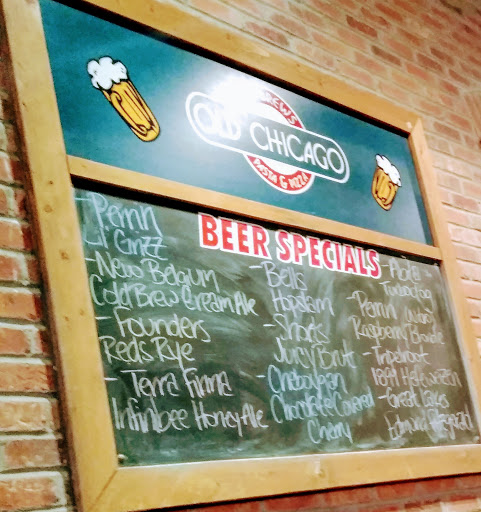 BREWS
OLD CHICAGO
PASTA & PIZZA
BEER SPECIALS
- Perrin
Lil Grizz
- New Belgium
Cold Brew Cream Ale
- Founders
Reds Rye
- Terra Firma
Infinibee Honey Ale
- Bells
Hopslam
- Shorts
Juicy Brut
- Ore Dock
Chocolate Covered
Cherry
- Abita
Turbodog
- Perrin
Raspberry Blonde
- Tripelroot
Hefeweizen
- Great Lakes
Edmund Fitzgerald